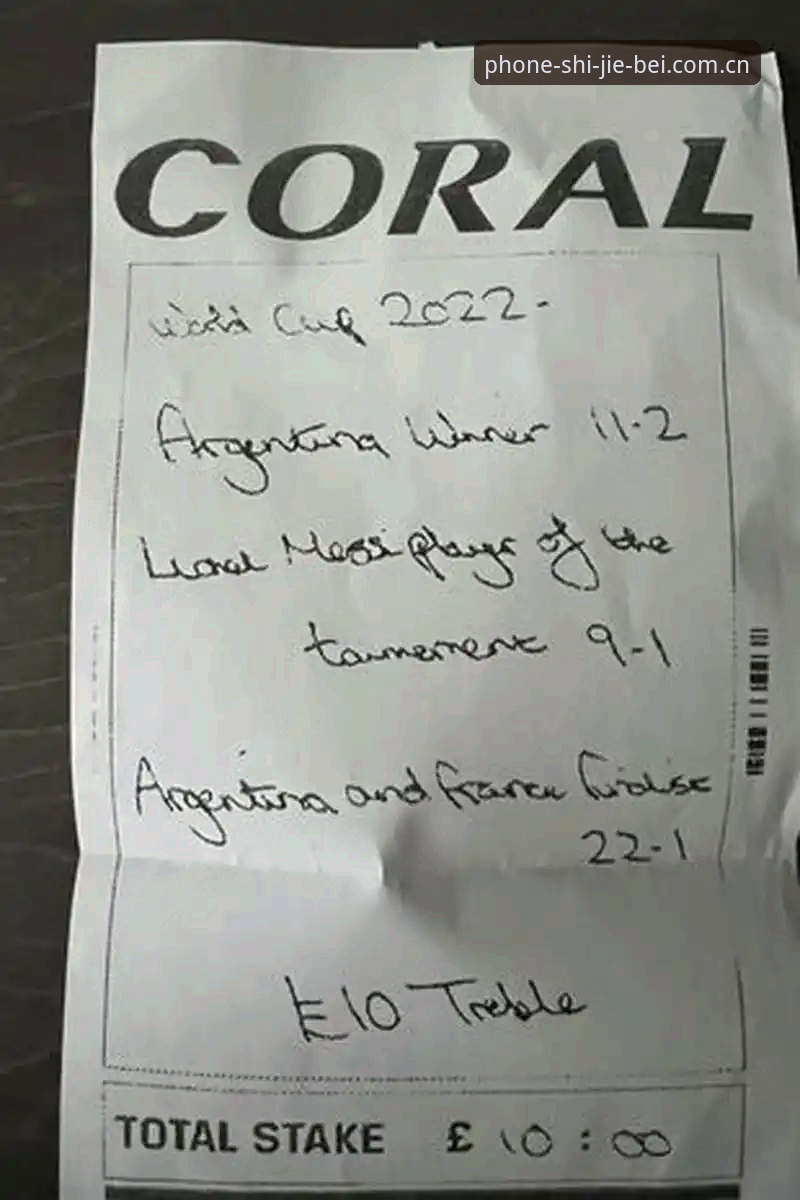 phone-shi-jie-bei.com.cn
CORAL
World Cup 2022-
Argentina Winner 11-2
Lionel Messi player of the
tournement 9-1
Argentina and France finalist
22-1
£10 Treble
TOTAL STAKE £ 10 : 00